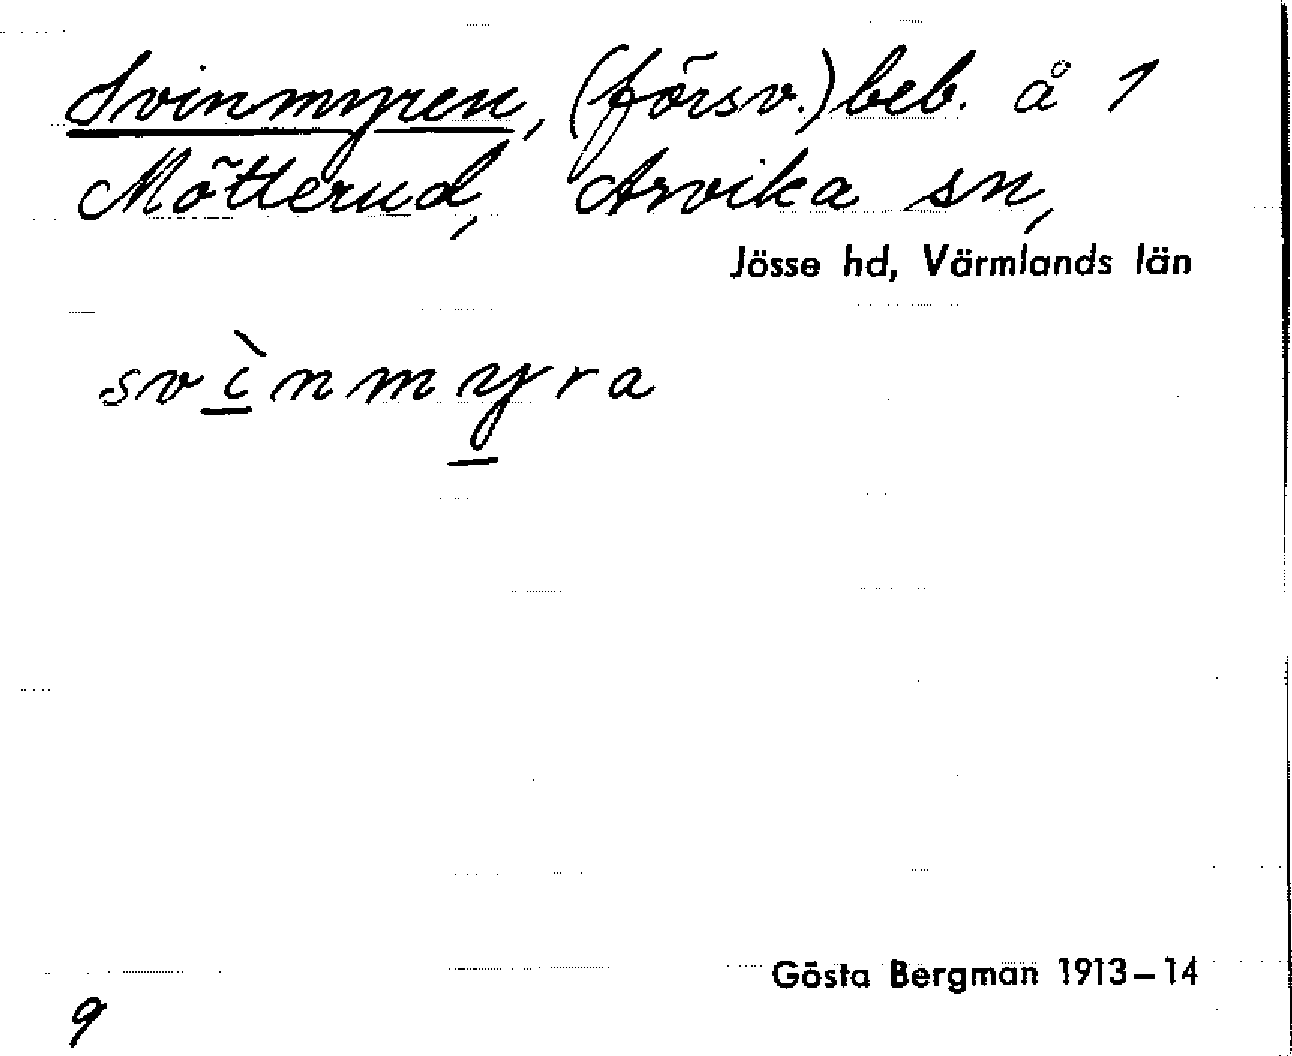 Svinmyren, (försv.) beb. å 1
Mötterud, Arvika sn,
Jösse hd, Värmlands län
svì̱nmy̱ra
Gösta Bergman 1913–14
9